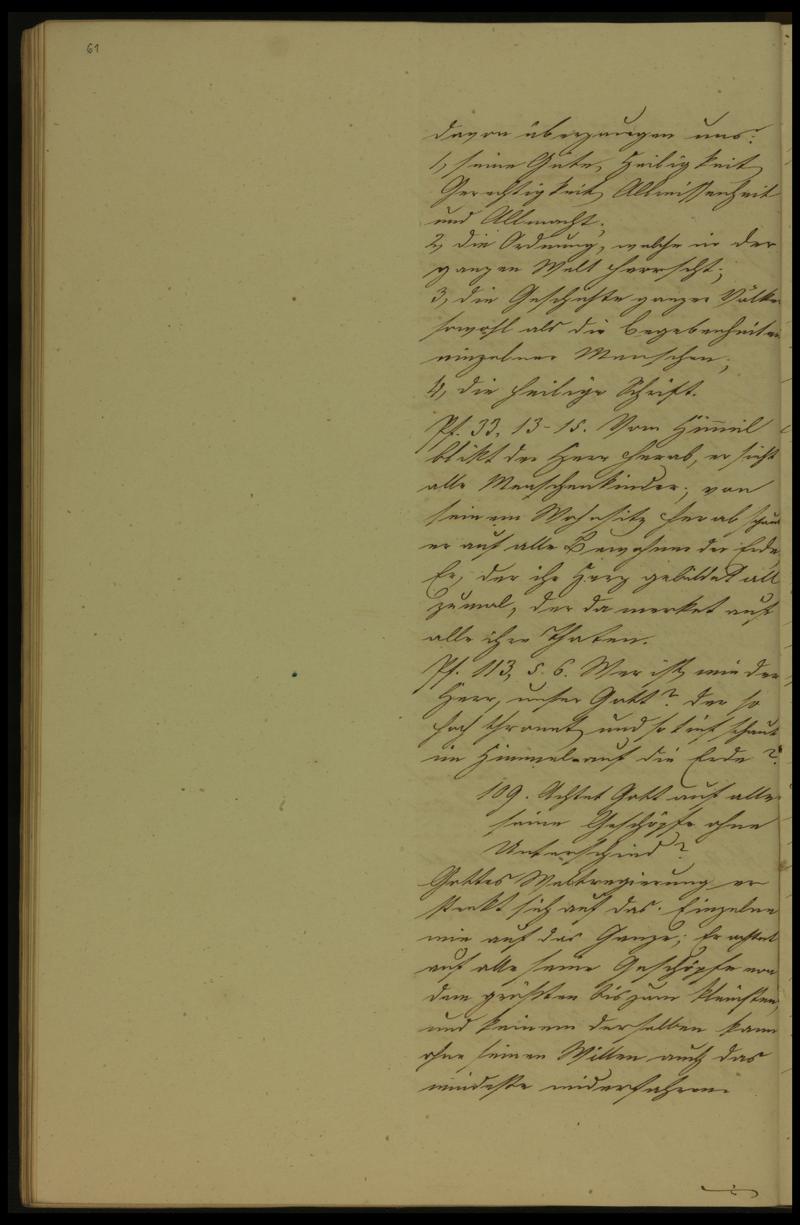 61
davon überzeugen uns:
1, seine Güte, Heiligkeit,
Gerechtigkeit, Allwissenheit
und Allmacht;
2, die Ordnung, welche in der
ganzen Welt herrscht;
3, die Geschichte ganzer Völker
sowohl als die Begebenheiten
einzelner Menschen;
4, die heilige Schrift.
Ps. 33, 13-15. Vom Himmel
blikt der Herr herab, er sieht
alle Menschenkinder; von
seinem Wohnsitz herab schaut
er auf alle Bewohner der Erde,
Er, der ihr Herz gebildet all
zumal, der da merket auf
alle ihre Thaten.
Ps. 113, 5. 6. Wer ist, wie der
Herr, unser Gott? der so
hoch thronet, und so tief schaut
im Himmel auf die Erde?
109. Achtet Gott auf alle
seine Geschöpfe ohne
Unterschied?
Gottes Weltregierung er
strekt sich auf das Einzelne
wie auf das Ganze; Er achtet
auf alle seine Geschöpfe von
dem größten bis zum kleinsten,
und keinem derselben kann
ohne seinen Willen auch das
mindeste widerfahren.